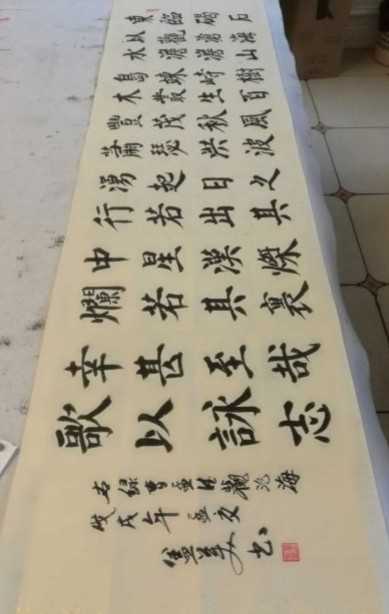 東臨碣石
以觀滄海
水澹澹山
島竦峙樹
木叢生百
豐茂秋風
蕭瑟洪波
湯起日之
行若出其
中星漢燦
爛若其裏
幸甚至哉
歌以詠志
右錄曹孟德觀滄海
戊年孟夏
書